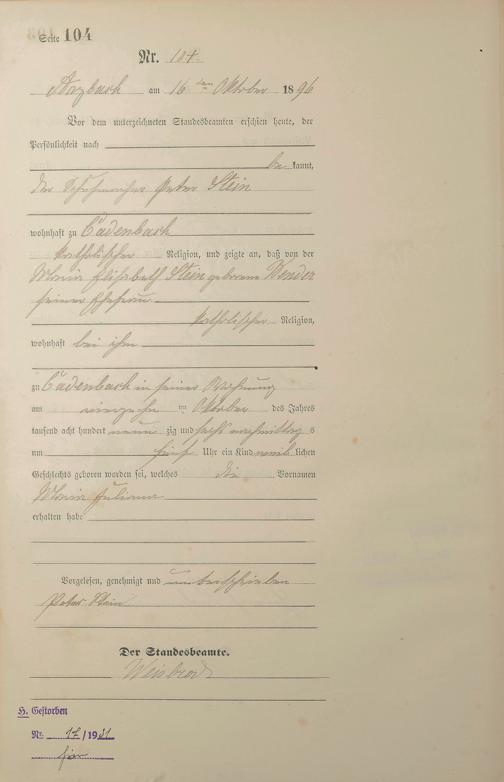 Seite 104
Nr. 104.
Arzbach am 16 ten Oktober 1896
Vor dem unterzeichneten Standesbeamten erschien heute, der
Persönlichkeit nach
be kannt,
der Schuhmacher Peter Stein
wohnhaft zu Cadenbach
katholischer Religion, und zeigte an, daß von der
Maria Elisabeth Stein geborene Wender
seiner Ehefrau
katholischer Religion,
wohnhaft bei ihm
zu Cadenbach in seiner Wohnung
am vierzehn ten Oktober des Jahres
tausend acht hundert neun zig und sechs nachmittag s
um fünf Uhr ein Kind weib lichen
Geschlechts geboren worden sei, welches die Vornamen
Maria Juliana
erhalten habe
Vorgelesen, genehmigt und unterschrieben
Peter Stein
Der Standesbeamte.
Weisbrod
H. Gestorben
Nr. 17/1981